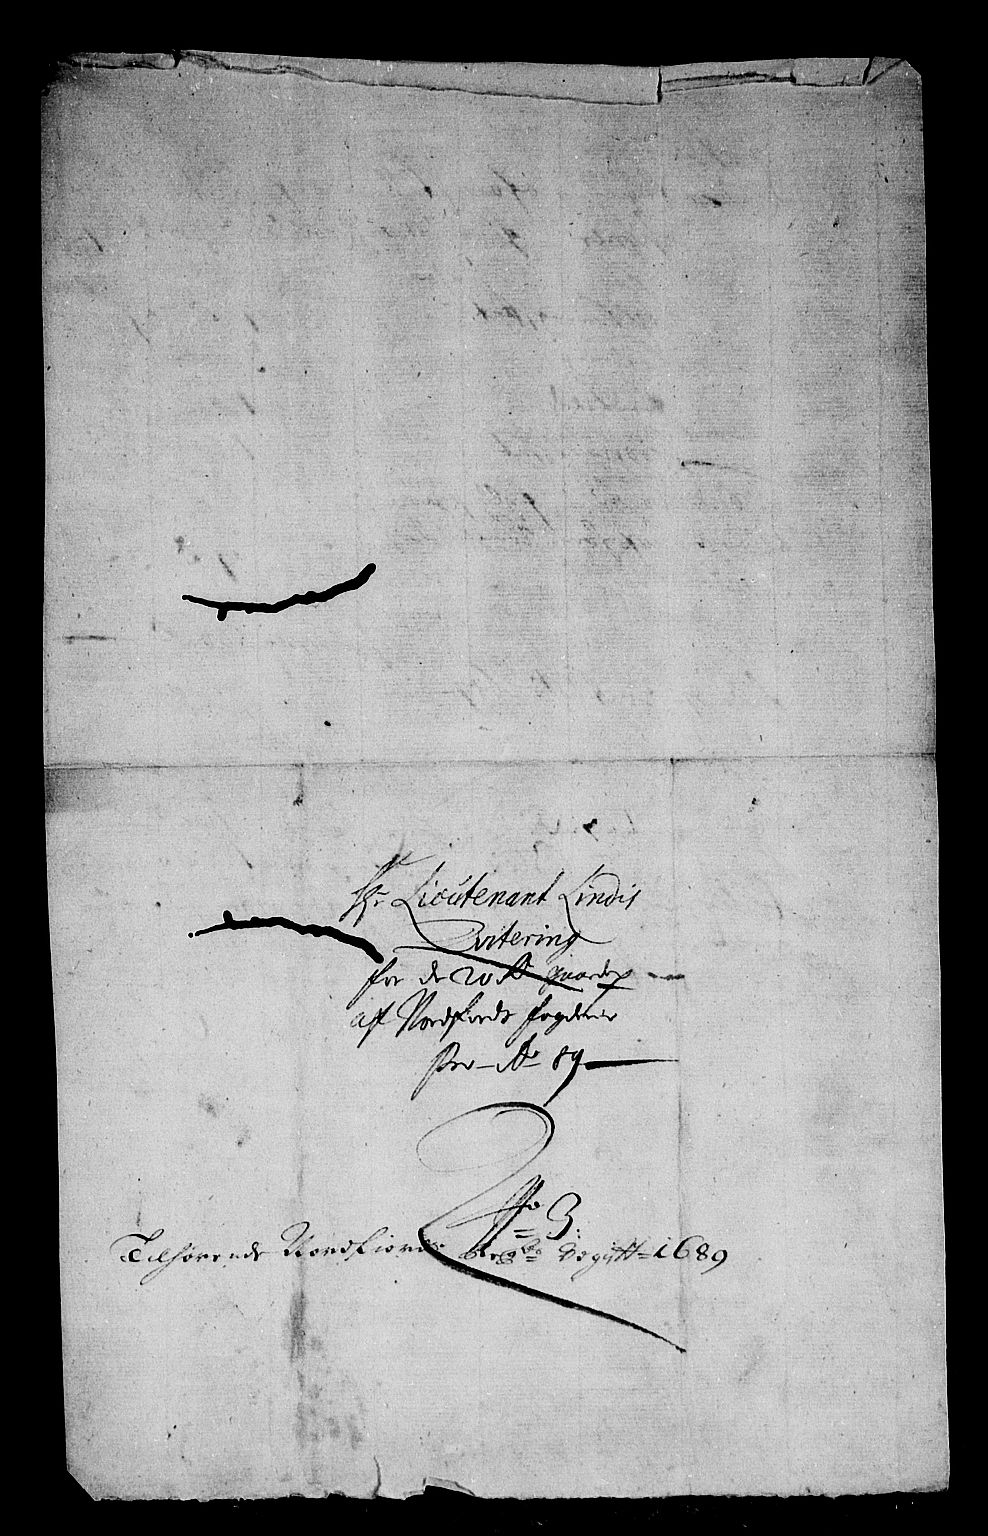 Hr Lieutenant Lindis
Qvitering
for de
aff Nordfiords fogderie
Pro Ao 89
No 3
Tilhørende Nordfiords 1689